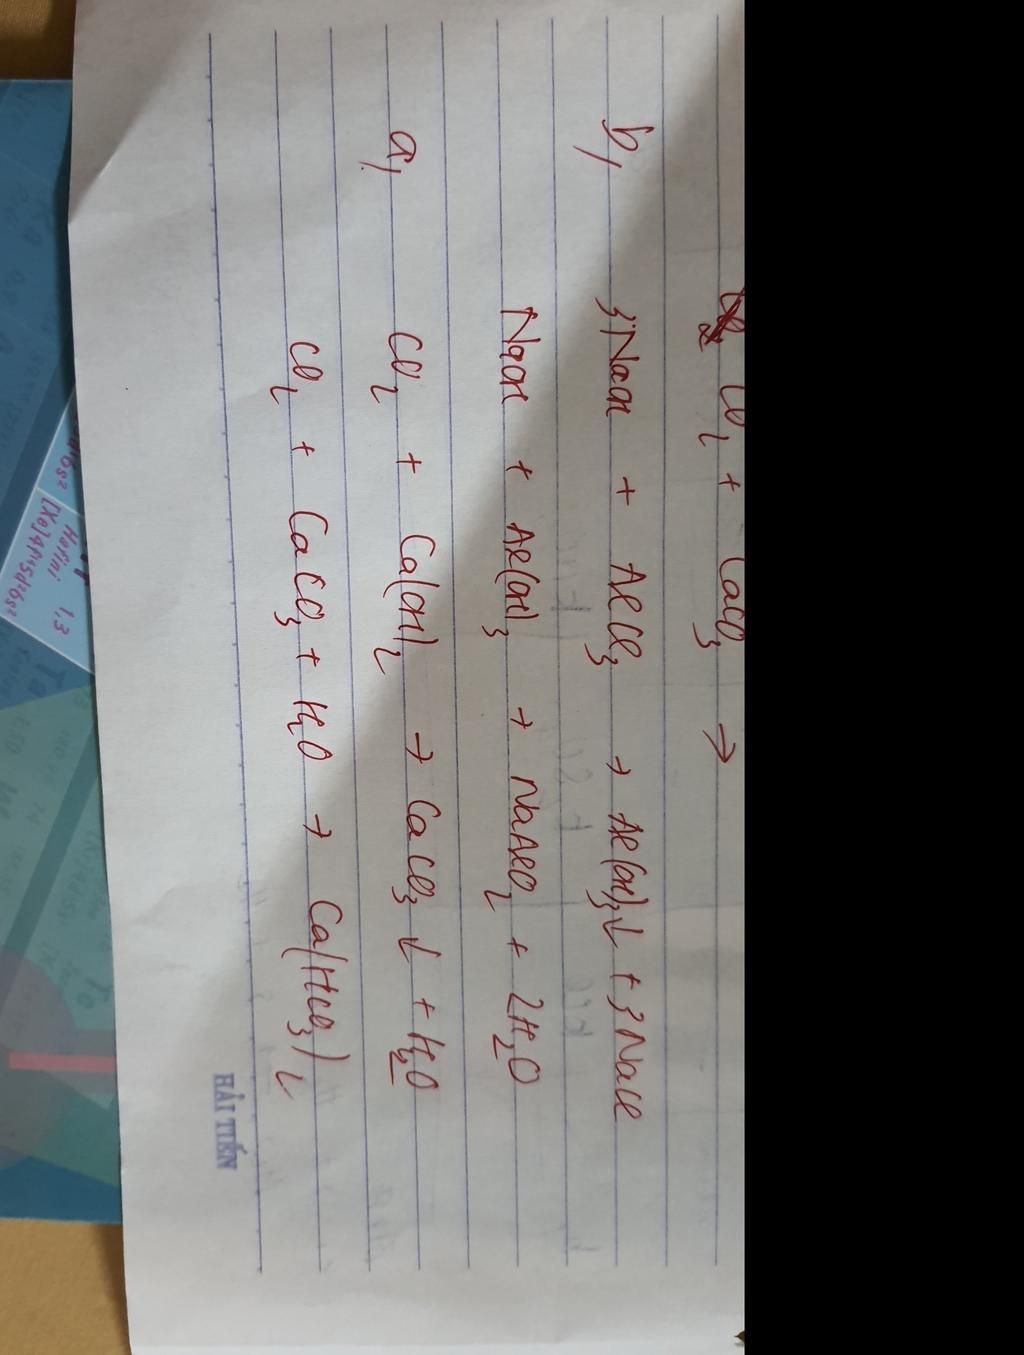 CO₂ + CaCO₃ →
b, 3NaOH + AlCl₃ → Al(OH)₃↓ + 3NaCl
NaOH + Al(OH)₃ → NaAlO₂ + 2H₂O
a, CO₂ + Ca(OH)₂ → CaCO₃↓ + H₂O
CO₂ + CaCO₃ + H₂O → Ca(HCO₃)₂
HẢI TIẾN
Hafini 1,3
[Xe]4f¹⁴5d²6s²